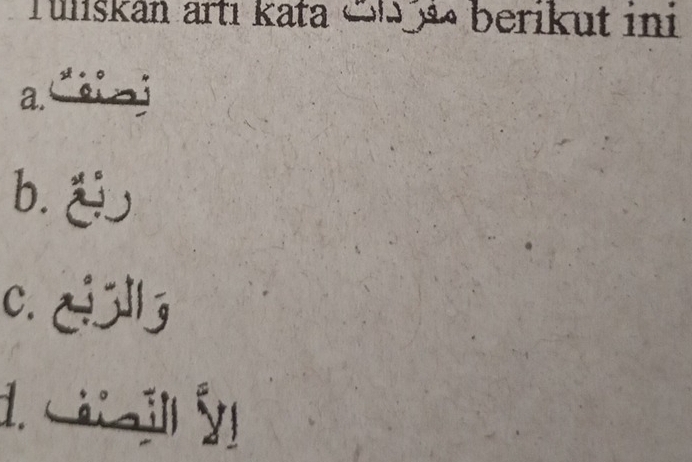 Tuliskan arti kata مفرَدات berikut ini
a. نِصْفٌ
b. رُبْعٌ
c. وَالرُّبْع
d. إِلاَّ النِّصْف